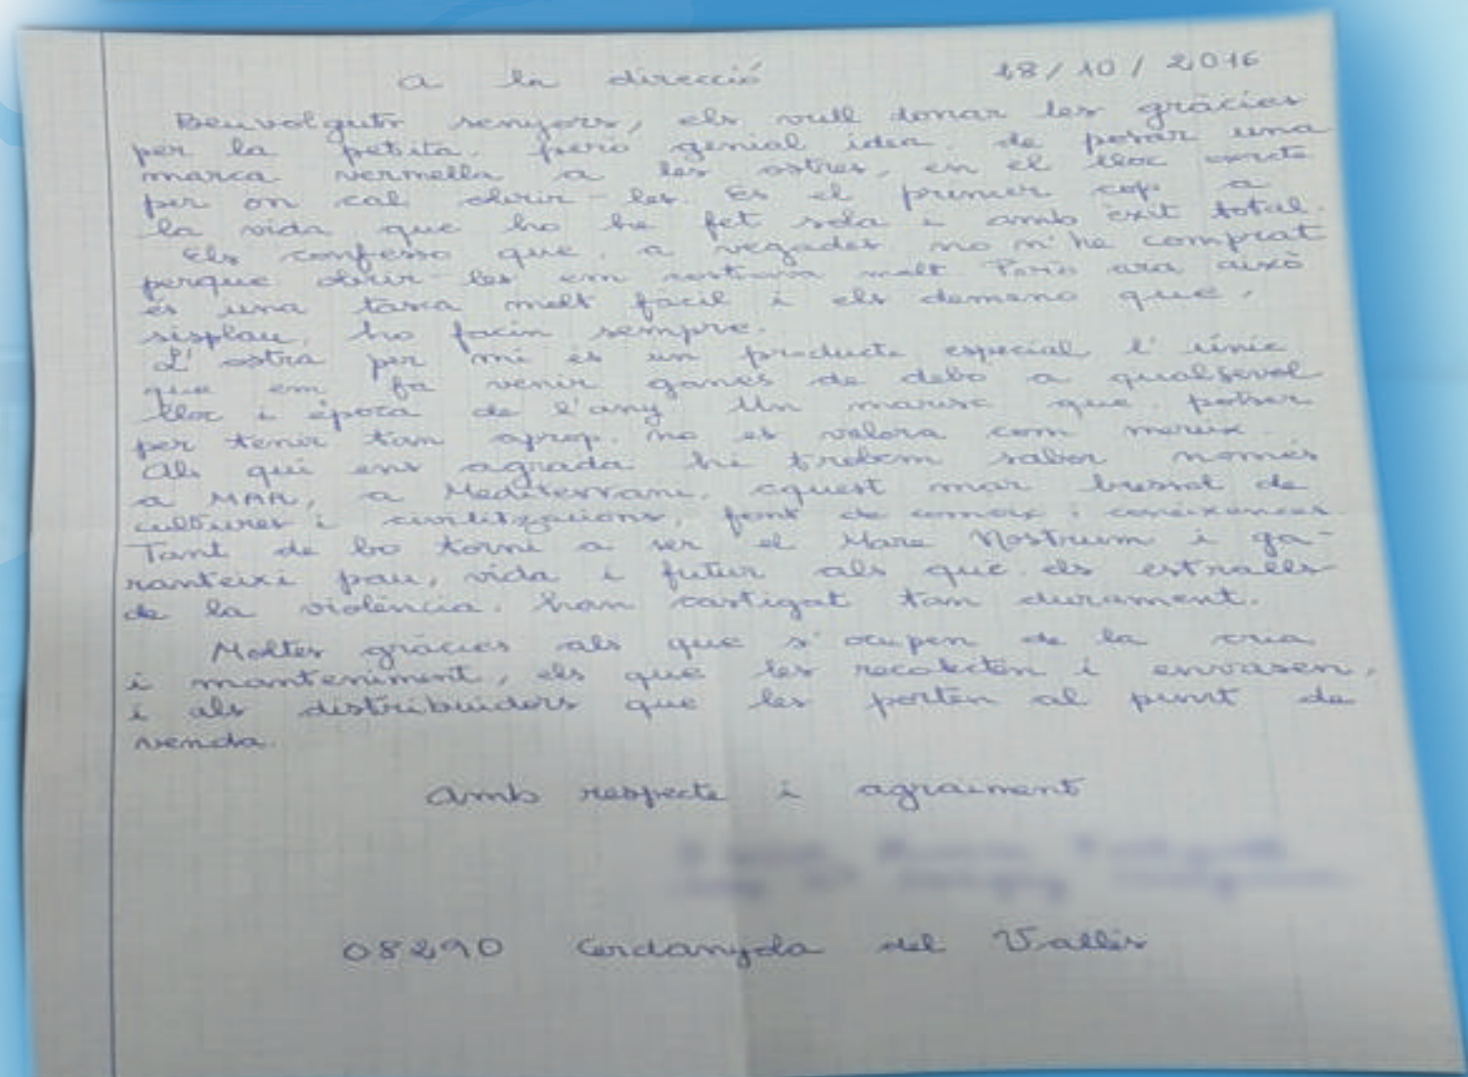 a la direcció 18/10/2016
Benvolguts senyors, els vull donar les gràcies
per la petita, però genial idea, de posar una
marca vermella a les ostres, en el lloc exacte
per on cal obrir-les. Es el primer cop a
la vida que ho he fet sola i amb exit total.
Els confesso que, a vegades no n'he comprat
perque obrir-les em costava molt. Però ara això
és una tasca molt fàcil i els demano que,
sisplau, ho facin sempre.
L'ostra per mi és un producte especial, l'únic
que em fa venir ganes de debò a qualsevol
lloc i època de l'any. Un marisc que, potser
per tenir tan aprop, no es valora com mereix.
Als qui ens agrada hi trobem sabor només
a MAR, a Mediterrani, aquest mar bressol de
cultures i civilitzacions, font de comerç i coneixences.
Tant de bo torni a ser el Mare Nostrum i ga-
ranteixi pau, vida i futur als que els estralls
de la violència, han castigat tan durament.
Moltes gràcies als que s'ocupen de la cria
i manteniment, els que les recolecten i envasen,
i als distribuidors que les porten al punt de
venda.
Amb respecte i agraiment
08290 Cerdanyola del Vallès